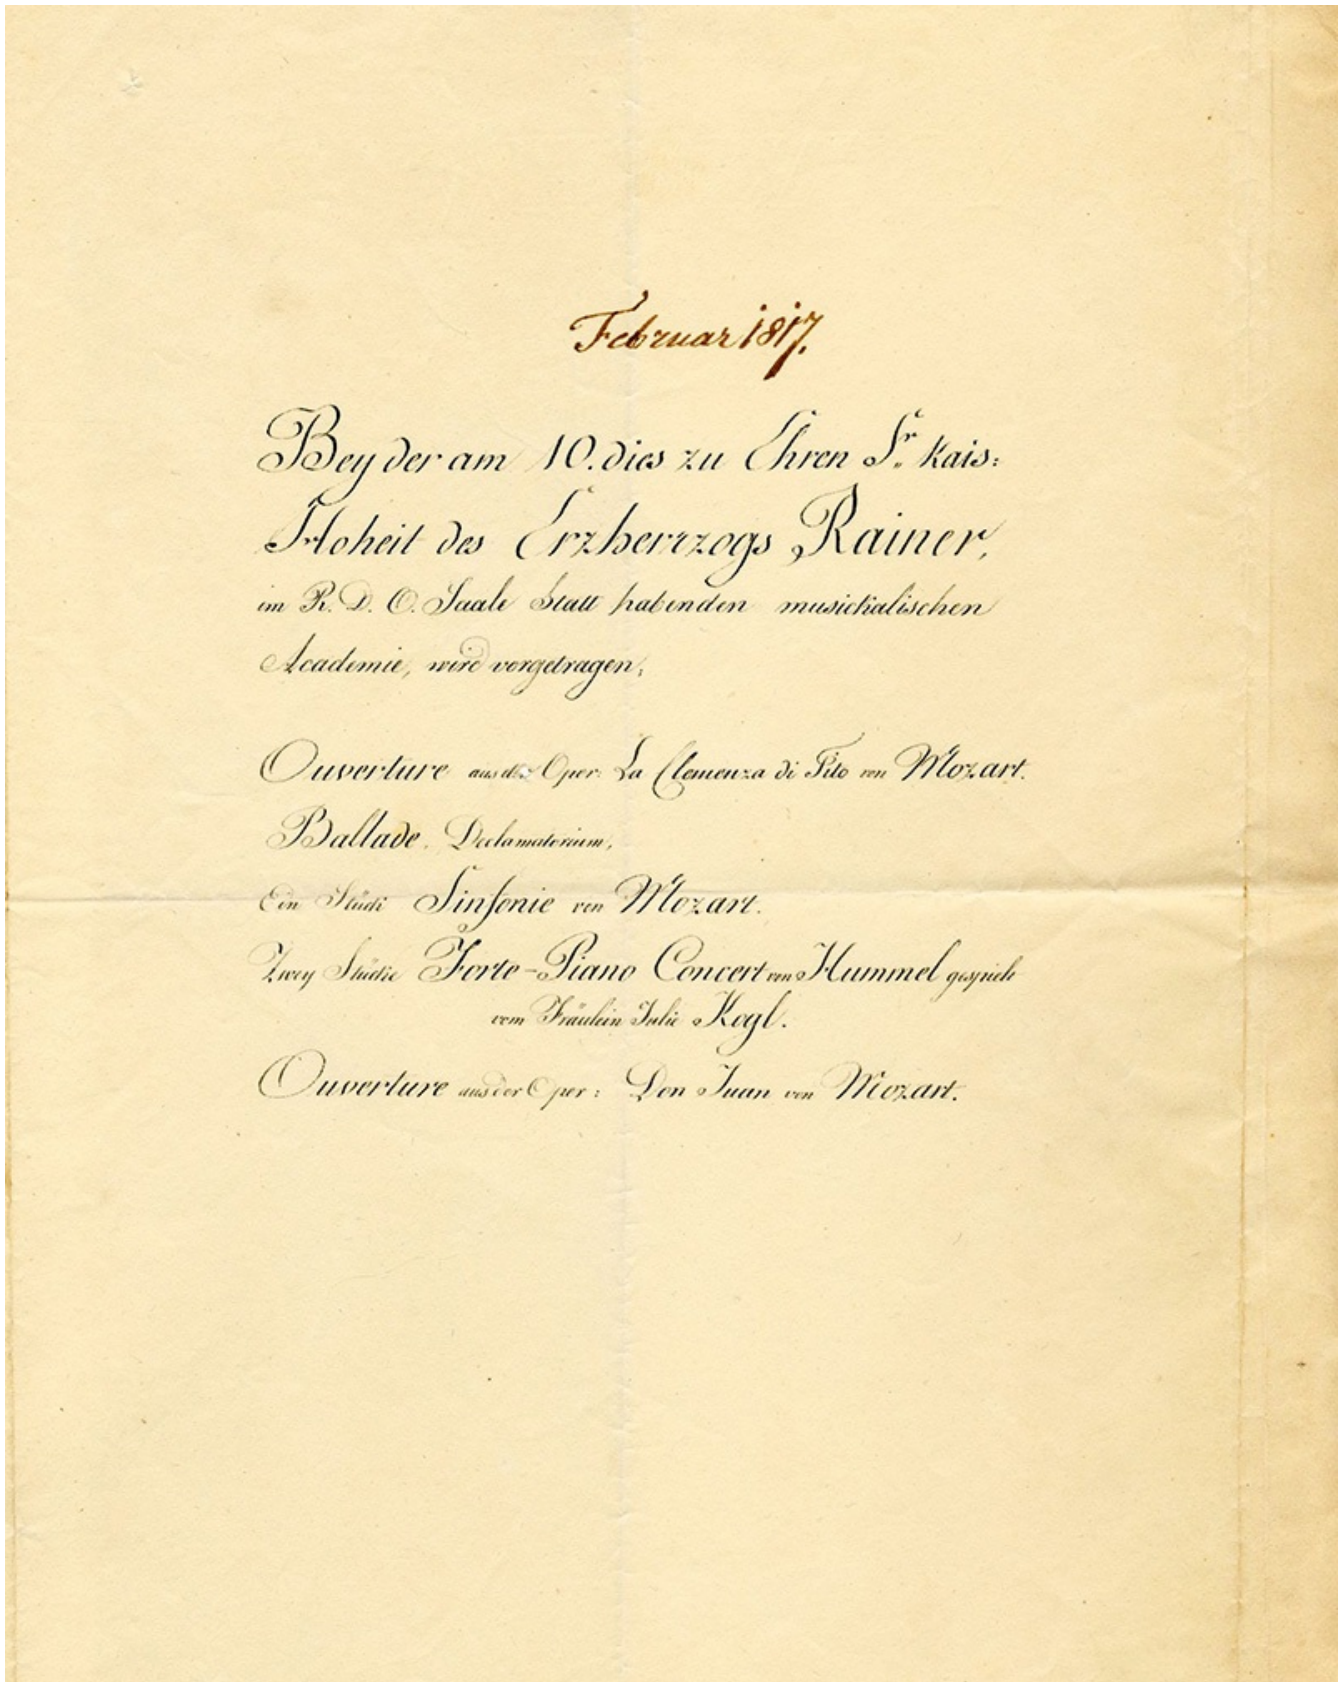 Februar 1817.
Bey der am 10. dies zu Ehren Sr. kais:
Hoheit des Erzherrzogs Rainer,
im R. D. O. Saale Statt habenden musickalischen
Academie, wird vorgetragen,
Ouverture aus der Oper: La Clemenza di Tito von Mozart.
Ballade, Declamatorium,
Ein Stück Sinfonie von Mozart.
Zwey Stücke Forte-Piano Concert von Hummel gespielt
vom Fräulein Julie Kogl.
Ouverture aus der Oper: Don Juan von Mozart.